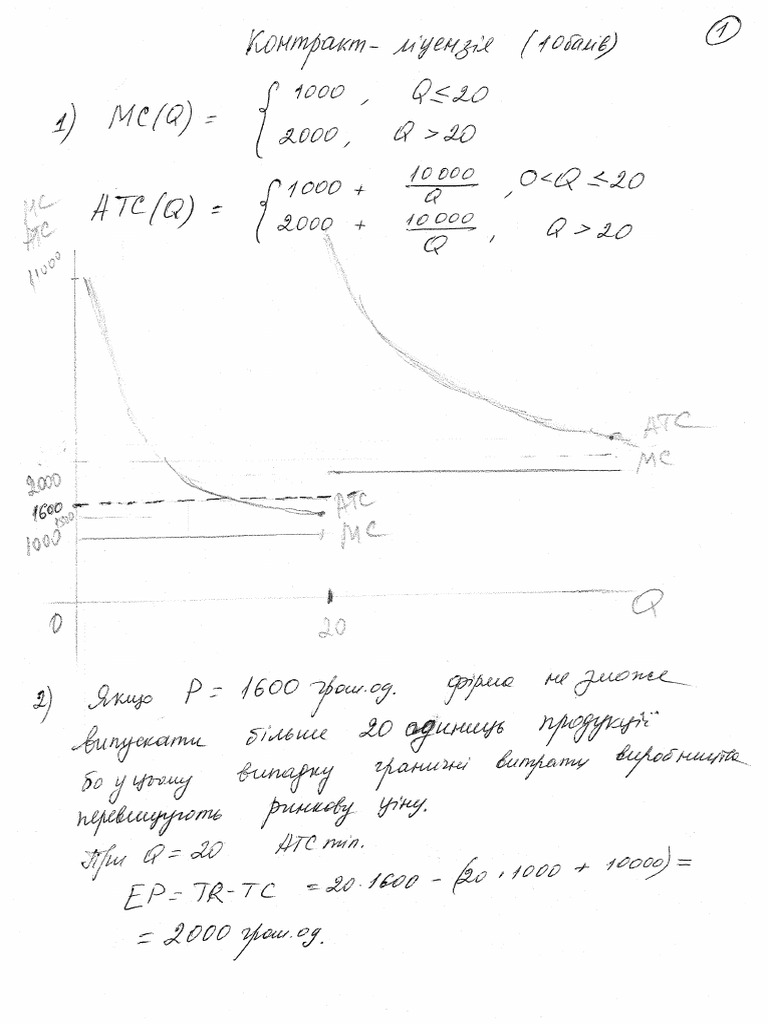 1
Контракт - ліцензія (10 балів)
1) MC(Q) = { 1000, Q ≤ 20
2000, Q > 20
ATC(Q) = { 1000 + 10000/Q, 0<Q ≤ 20
2000 + 10000/Q, Q > 20
MC
ATC
11000
ATC
MC
2000
1600
1500
1000
ATC
MC
0
20
Q
2) Якщо P = 1600 грош.од. фірма не зможе
випускати більше 20 одиниць продукції
бо у цьому випадку граничні витрати виробництва
перевищують ринкову ціну.
При Q = 20 ATC min.
EP = TR - TC = 20·1600 - (20·1000 + 10000) =
= 2000 грош.од.